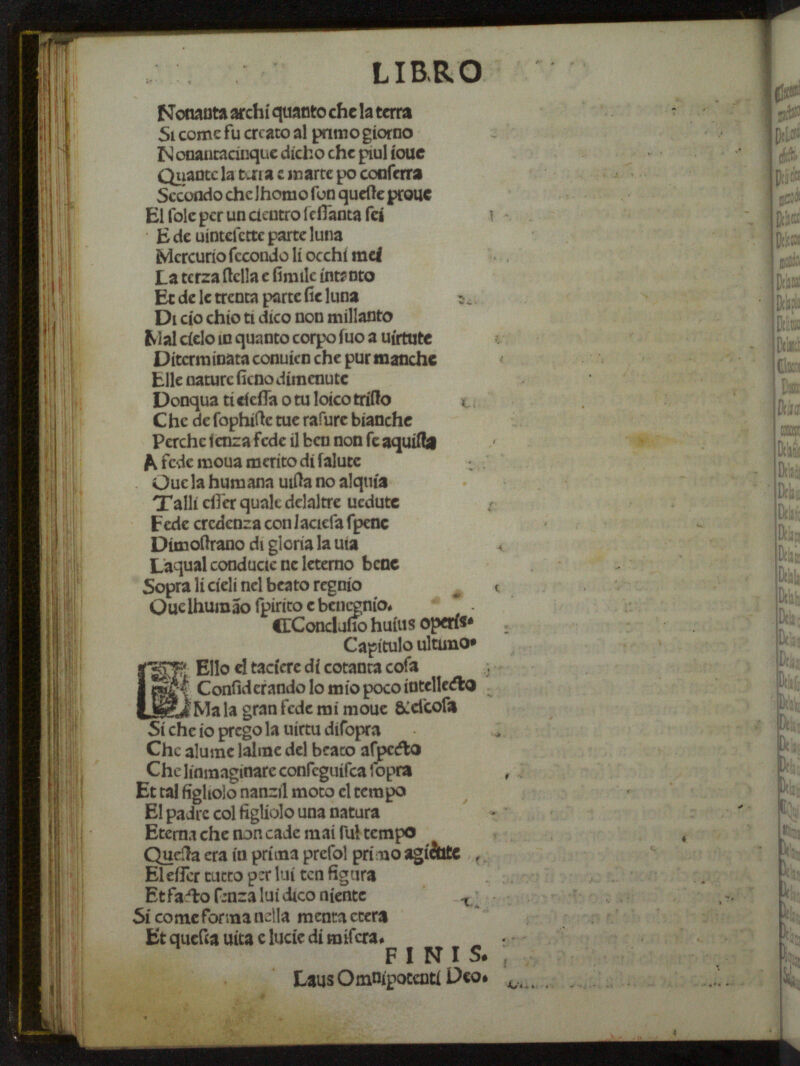 LIBRO
Nonanta archi quanto che la terra
Si come fu creato al primo giorno
Nonantacinque dicho che piul ioue
Quante la terra e marte po conferra
Secondo che lhomo fon queste proue
El sole per un cientro sessanta sei
E de uintesette parte luna
Mercurio secondo li occhi mei
La terza stella e simile intanto
Et de le trenta parte sie luna
Di cio chio ti dico non millanto
Mal cielo in quanto corpo suo a uirtute
Diterminata conuien che pur manche
Elle nature sieno dimenute
Donqua ti
o tu loico tristo
Che de sophiste tue rasure bianche
Perche senza fede il ben non se aquista
A fede moua merito di salute
Oue la humana uista no alquia
Talli esser quale delaltre uedute
Fede credenza con laciesa spene
Dimostrano di gloria la uia
Laqual conducie ne leterno bene
Sopra li cieli nel beato regnio
Oue lhumão spirito e benegnio.
❡Conclusio huius operis.
Capitulo ultimo.
Ello el taciere di cotanta cosa
Considerando lo mio poco intellecto
Ma la gran fede mi moue & escosa
Si che io prego la uirtu disopra
Che alume lalme del beato aspecto
Che linmaginare conseguisca sopra
Et tal figliolo nanzil moto el tempo
El padre col figliolo una natura
Eterna che non cade mai sul tempo
Questa era in prima presol primo agiente
El esser tutto per lui ten figura
Et facto senza lui dico niente
Si come forma nella menta etera
Et questa uita e lucie di misera.
FINIS.
Laus Omnipotenti Deo.